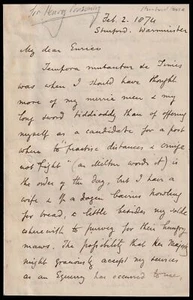 Sir Henry Ponsonby
Feb. 2. 1874
Warminster
My dear
Tempora mutantur the Times
was when I should have thought
more of my merrie men & my
long sword biddickly than of offering
myself as a candidate for a post
where to practise distances & cringe
not fight" (as Melton words it) is
the order of the day, but I have a
wife & ½ a dozen bairns howling
for bread, & little besides my
wherewith to purvey for their hungry
maws. The possibility that her Majesty
might graciously accept my services
as an Equerry has occurred to me,